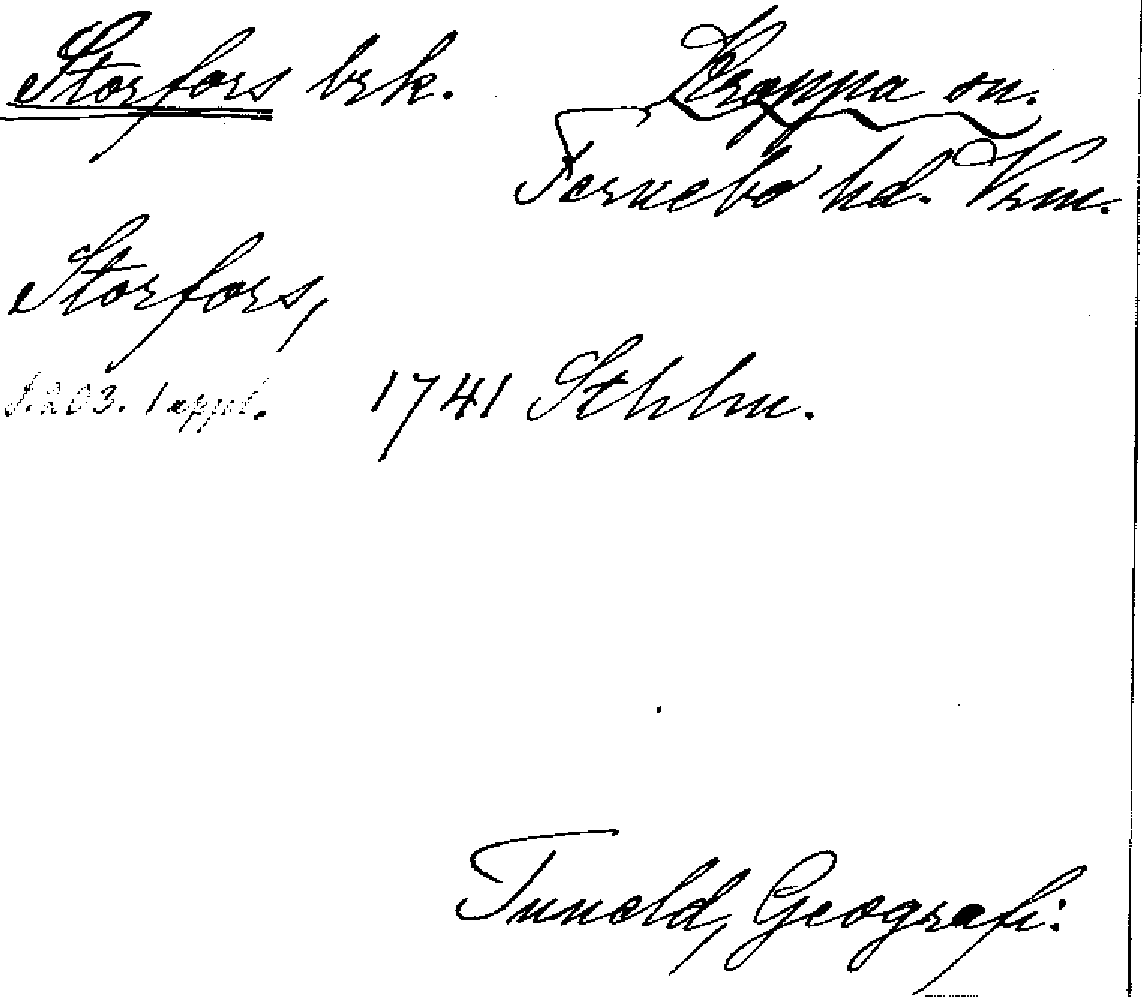 Storfors brk. Kroppa sn.
Fernebo hd. Vrm.
Storfors,
s. 203. 1 uppl. 1741 Sthlm.
Tuneld, Geografi: